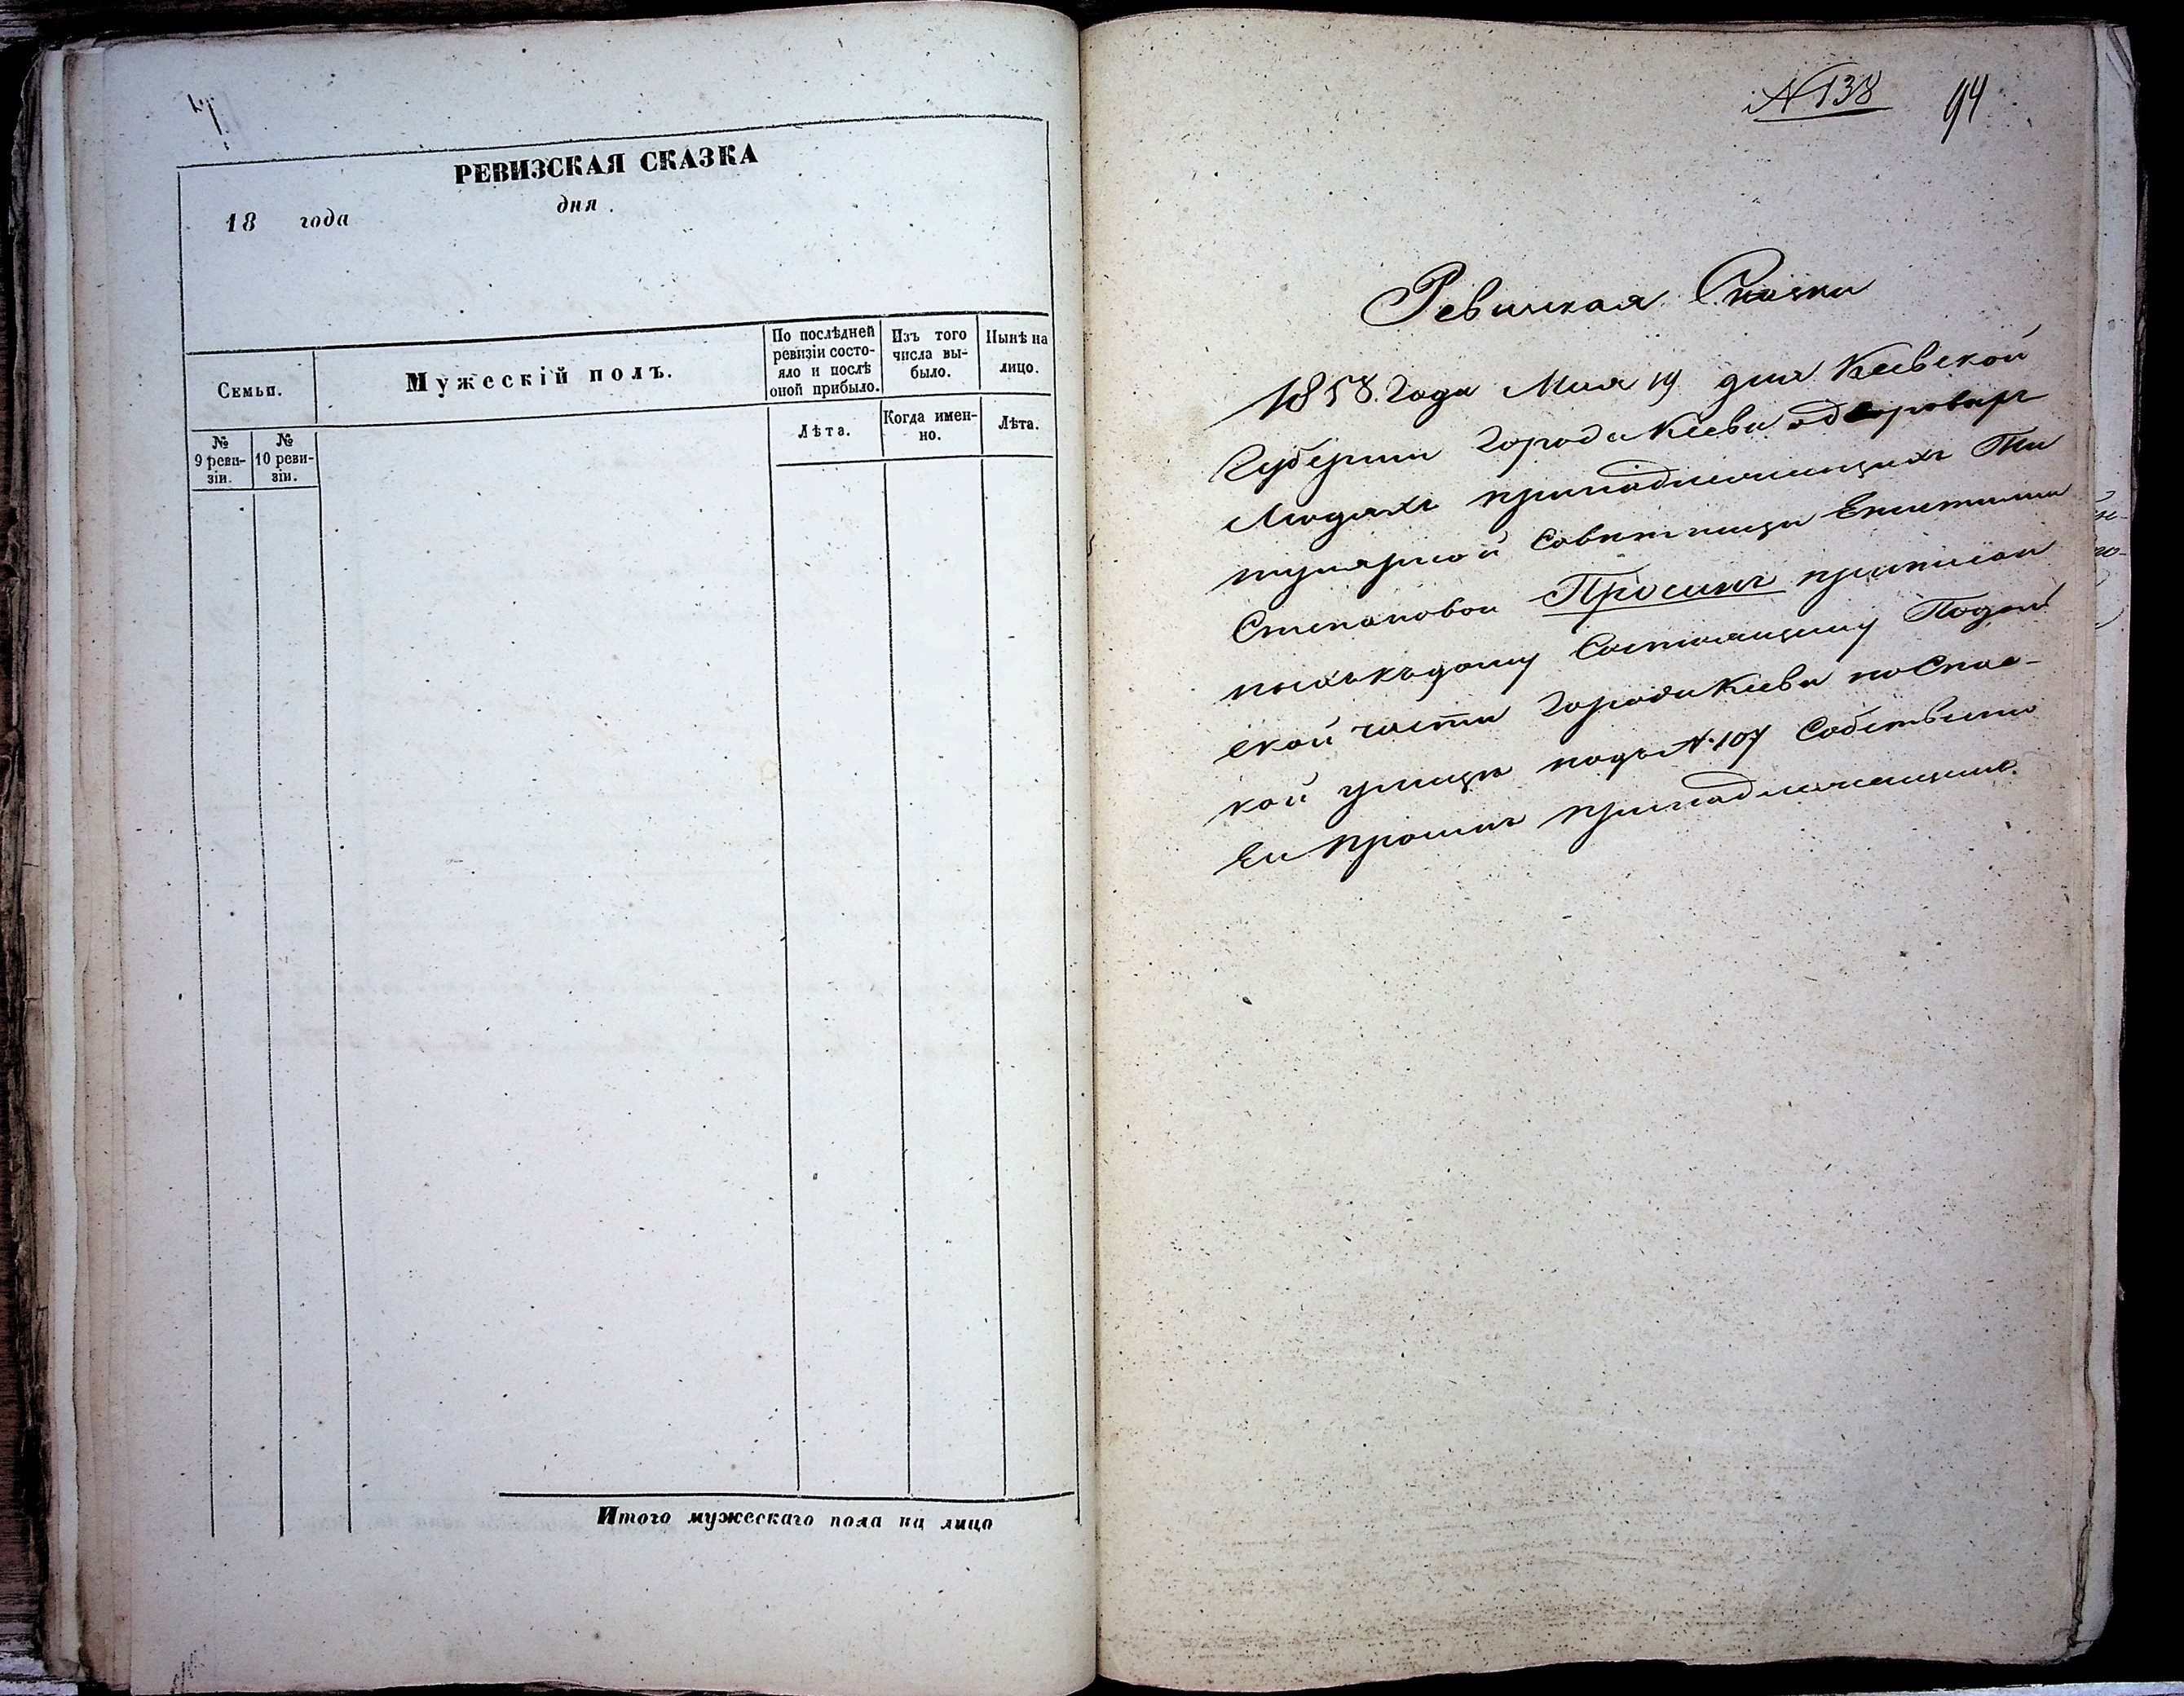 РЕВИЗСКАЯ СКАЗКА
18 года дня
Семьи.
Мужескій полъ.
По послѣдней ревизіи состояло и послѣ оной прибыло.
Изъ того числа выбыло.
Нынѣ на лицо.
№ 9 ревизіи.
№ 10 ревизіи.
Лѣта.
Когда именно.
Лѣта.
Итого мужескаго пола на лицо
N 138 94
Ревизская Сказка
1858. года Мая 19 дня Киевской
Губернии города Киева одворовыхъ
Людяхъ принадлежащихъ Ти
тулярной Советницы
Степановой приписан
ныхъ къ дому Состоящему Подол
ской части города Киева по Спас-
кой улицы подъ N. 107 Собственно
Ей принадлежащихъ.